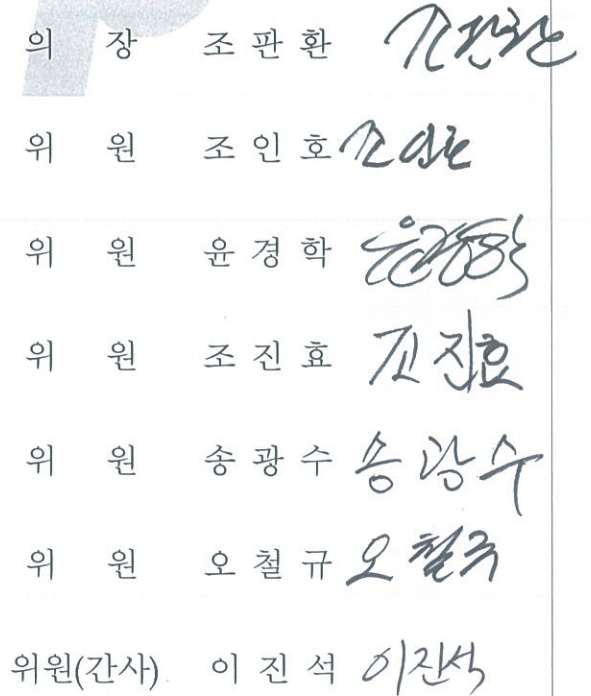 의 장 조 판 환 조판환
위 원 조 인 호 조인호
위 원 윤 경 학 윤경학
위 원 조 진 효 조진효
위 원 송 광 수 송광수
위 원 오 철 규 오철규
위원(간사) 이 진 석 이진석